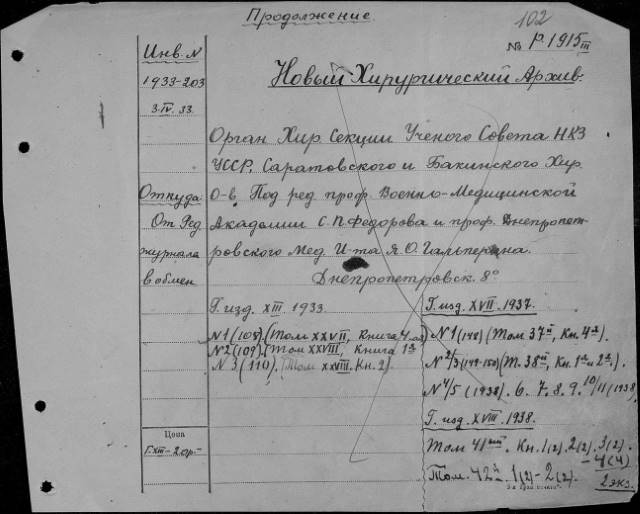 Продолжение.
102
№ Р1915 III
Инв. №
1933-203
3.IV.33.
Откуда
От Ред
журнала
в обмен
Цена
Г.XIII-2.ор-
Новый Хирургический Архив.
Орган Хир. Секции Ученого Совета НКЗ
УССР, Саратовского и Бакинского Хир.
О-в, Под ред. проф. Военно-Медицинской
Академии С.П.Федорова и проф. Днепропет-
ровского Мед. И-та Я.О.Гальперна.
Днепропетровск. 8°
Г. изд. XIII. 1933.
№1(108) (Том XXVII, Книга 4-ая)
№2(109) (Том XXVIII, Книга 1ª
№3(110). (Том XXVIII. Кн. 2).
Г. изд. XVII. 1937.
№1(148) (Том 37й, Кн. 4ª).
№2/3(149-150) (Т. 38й, Кн. 1ª и 2ª.).
№4/5 (1938). 6. 7. 8. 9. 10/11 (1938)
Г. изд. XVIII. 1938.
Том 41ый. Кн. 1(2). 2(2). 3(2).
-4(4)
Том. 42й. 1(2)-2(2).
2экз.